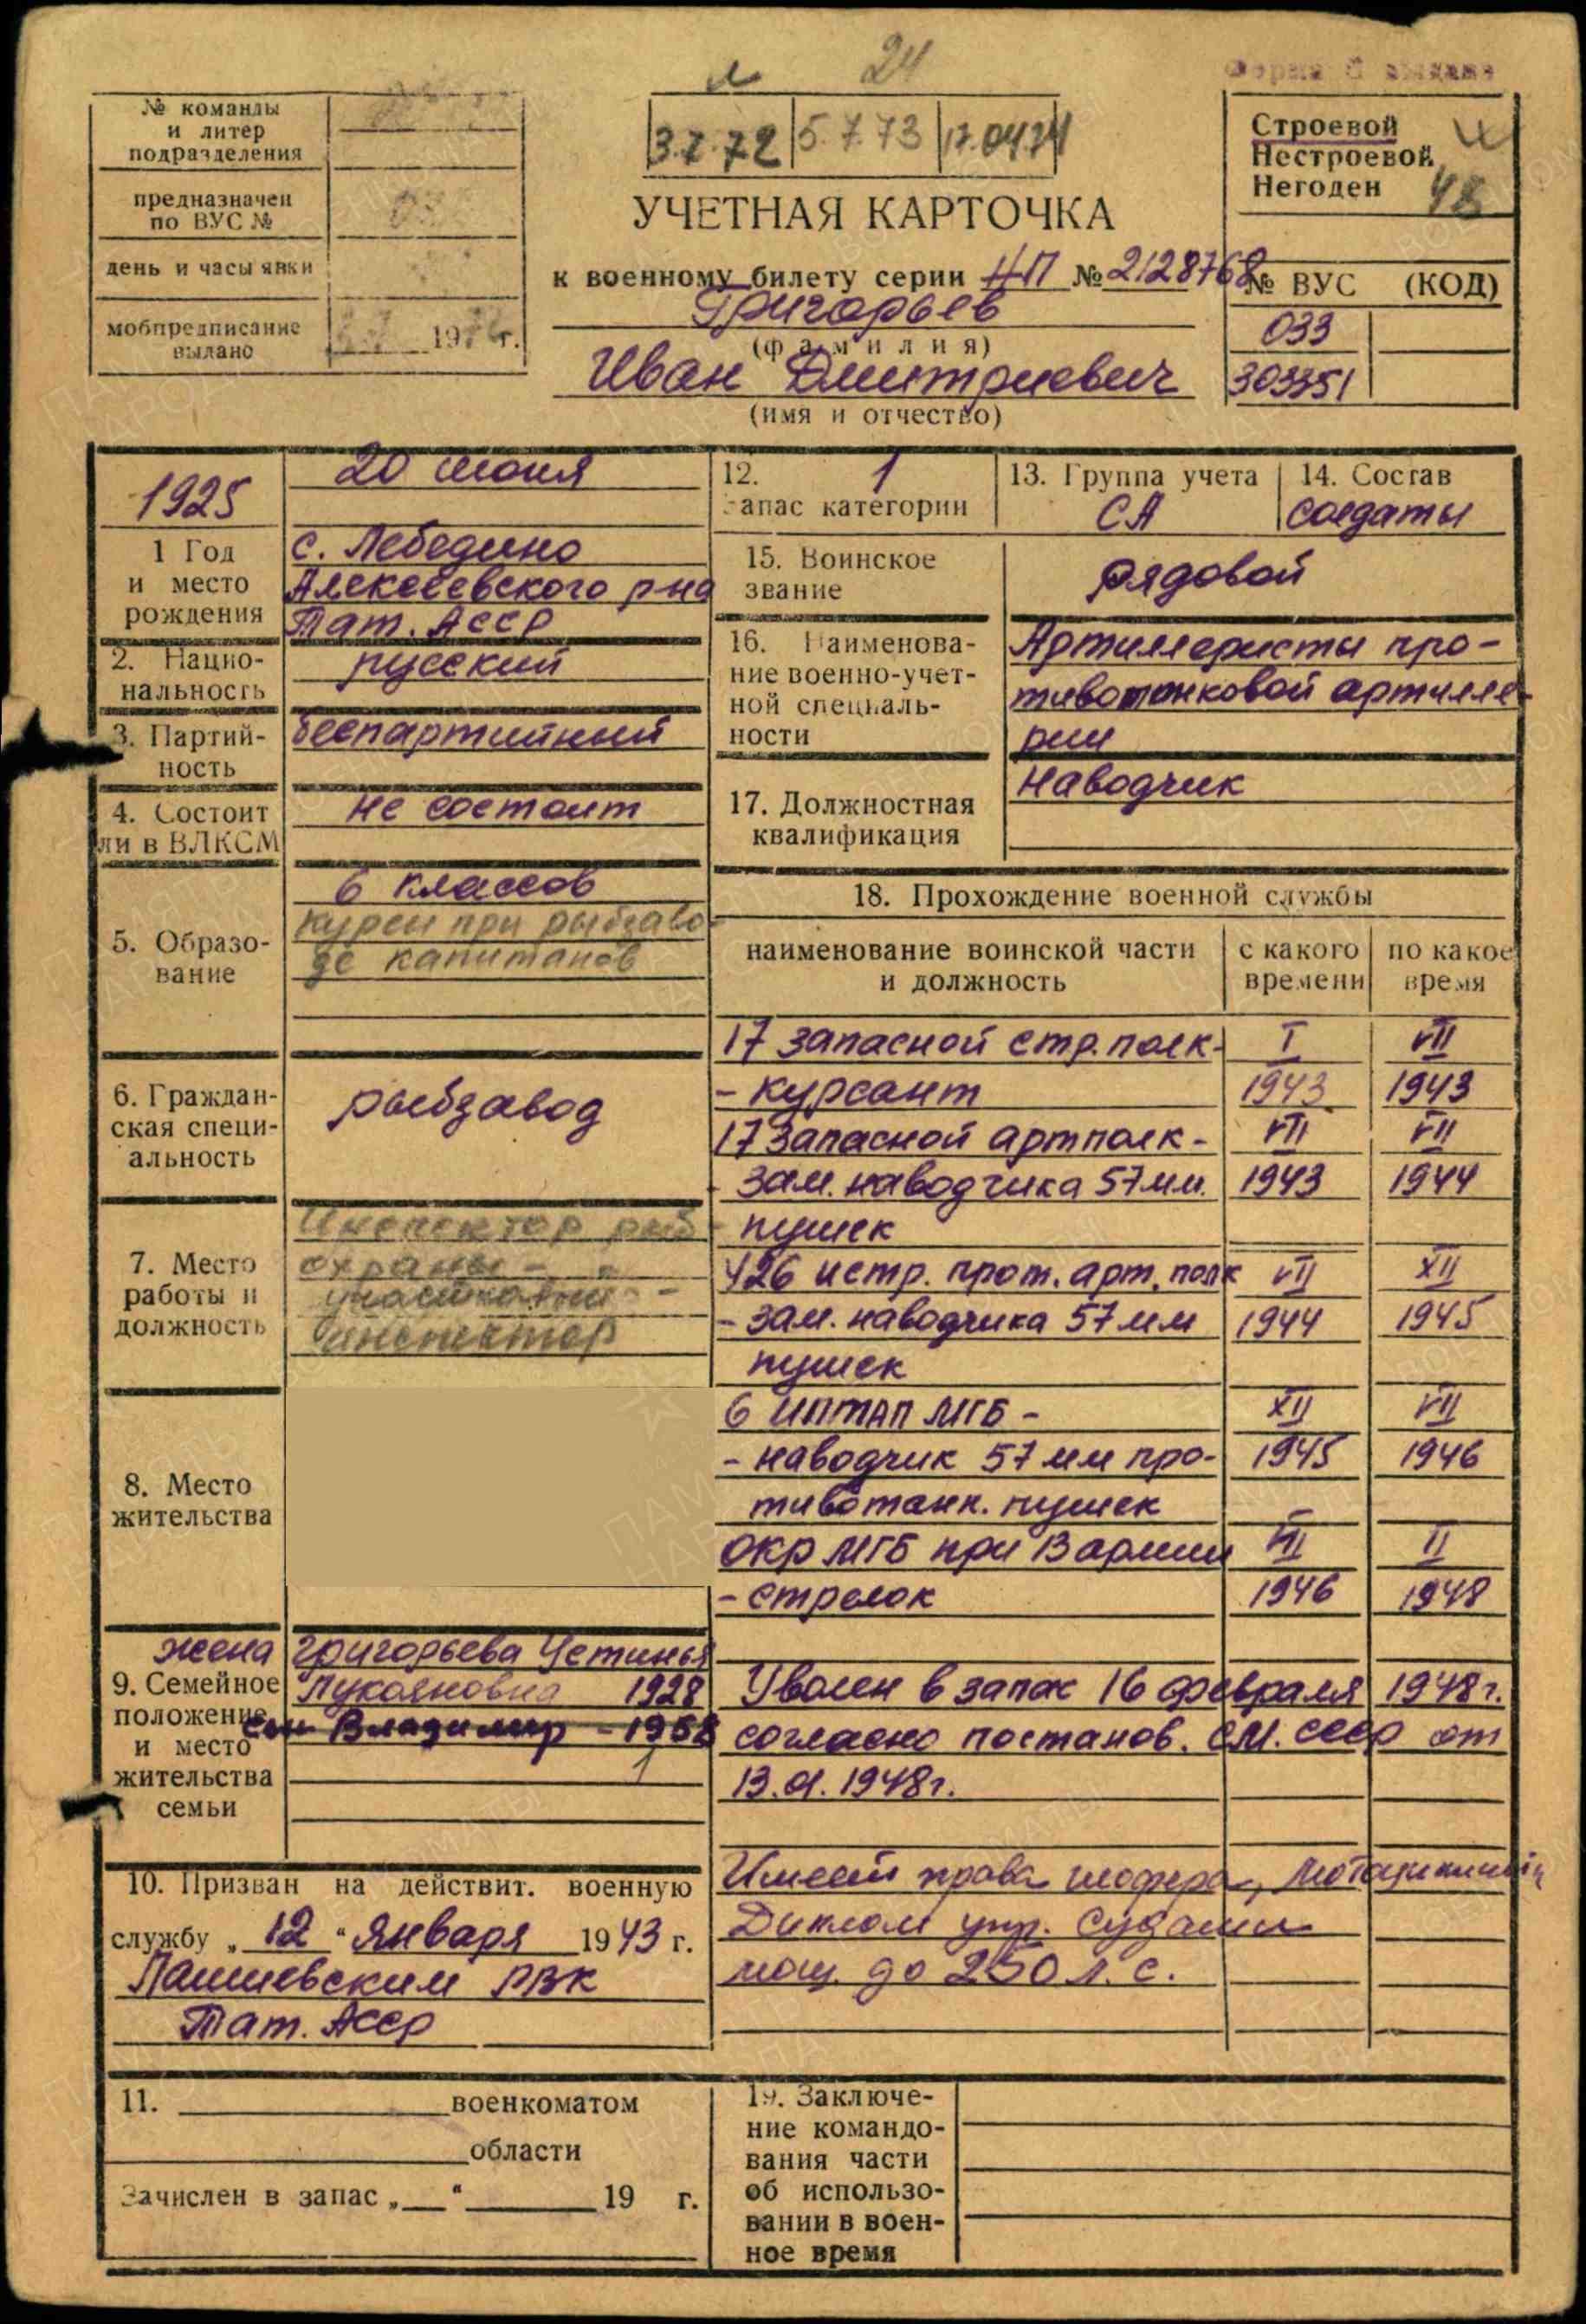 24
Форма выдана
№ команды
и литер
подразделения
предназначен
по ВУС №
день и часы явки
мобпредписание
выдано
197 г.
3.7.72 5.7.73 17.04.74
УЧЕТНАЯ КАРТОЧКА
к военному билету серии НП № 2128768
Григорьев
(фамилия)
Иван Дмитриевич
(имя и отчество)
Строевой
Нестроевой
Негоден
48
№ ВУС (КОД)
033
303351
1925
20 июня
1 Год
и место
рождения
с. Лебедино
Алексеевского р-на
Тат. АССР
2. Нацио-
нальность
русский
3. Партий-
ность
беспартийный
4. Состоит
ли в ВЛКСМ
не состоит
5. Образо-
вание
6 классов
курсы при рыбзаво-
де капитанов
6. Граждан-
ская специ-
альность
рыбзавод
7. Место
работы и
должность
Инспектор рыб-
охраны -
участковый -
инспектор
8. Место
жительства
жена Григорьева Устинья
Лукояновна 1928
сын Владимир - 1958
1
9. Семейное
положение
и место
жительства
семьи
10. Призван на действит. военную
службу „12“ Января 1943 г.
Лаишевским РВК
Тат. Асср
11. военкоматом
области
Зачислен в запас „ “ 19 г.
12. 1
запас категории
13. Группа учета
СА
14. Состав
солдаты
15. Воинское
звание
рядовой
16. Наименова-
ние военно-учет-
ной специаль-
ности
Артиллеристы про-
тивотанковой артилле-
рии
17. Должностная
квалификация
наводчик
18. Прохождение военной службы
наименование воинской части
и должность
с какого
времени
по какое
время
17 запасной стр. полк- I VII
- курсант 1943 1943
17 запасной артполк- VII VII
зам. наводчика 57 мм. 1943 1944
пушек
426 истр. прот. арт. полк VII XII
- зам. наводчика 57 мм 1944 1945
пушек
6 иптап МГБ - XII VII
- наводчик 57 мм про- 1945 1946
тивотанк. пушек
окр МГБ при 13 армии VII II
- стрелок 1946 1948
Уволен в запас 16 февраля 1948 г.
согласно постанов. СМ. СССР от
13.01.1948 г.
Имеет права шофера,
Диплом упр. судами
мощ. до 250 л. с.
19. Заключе-
ние командо-
вания части
об использо-
вании в воен-
ное время